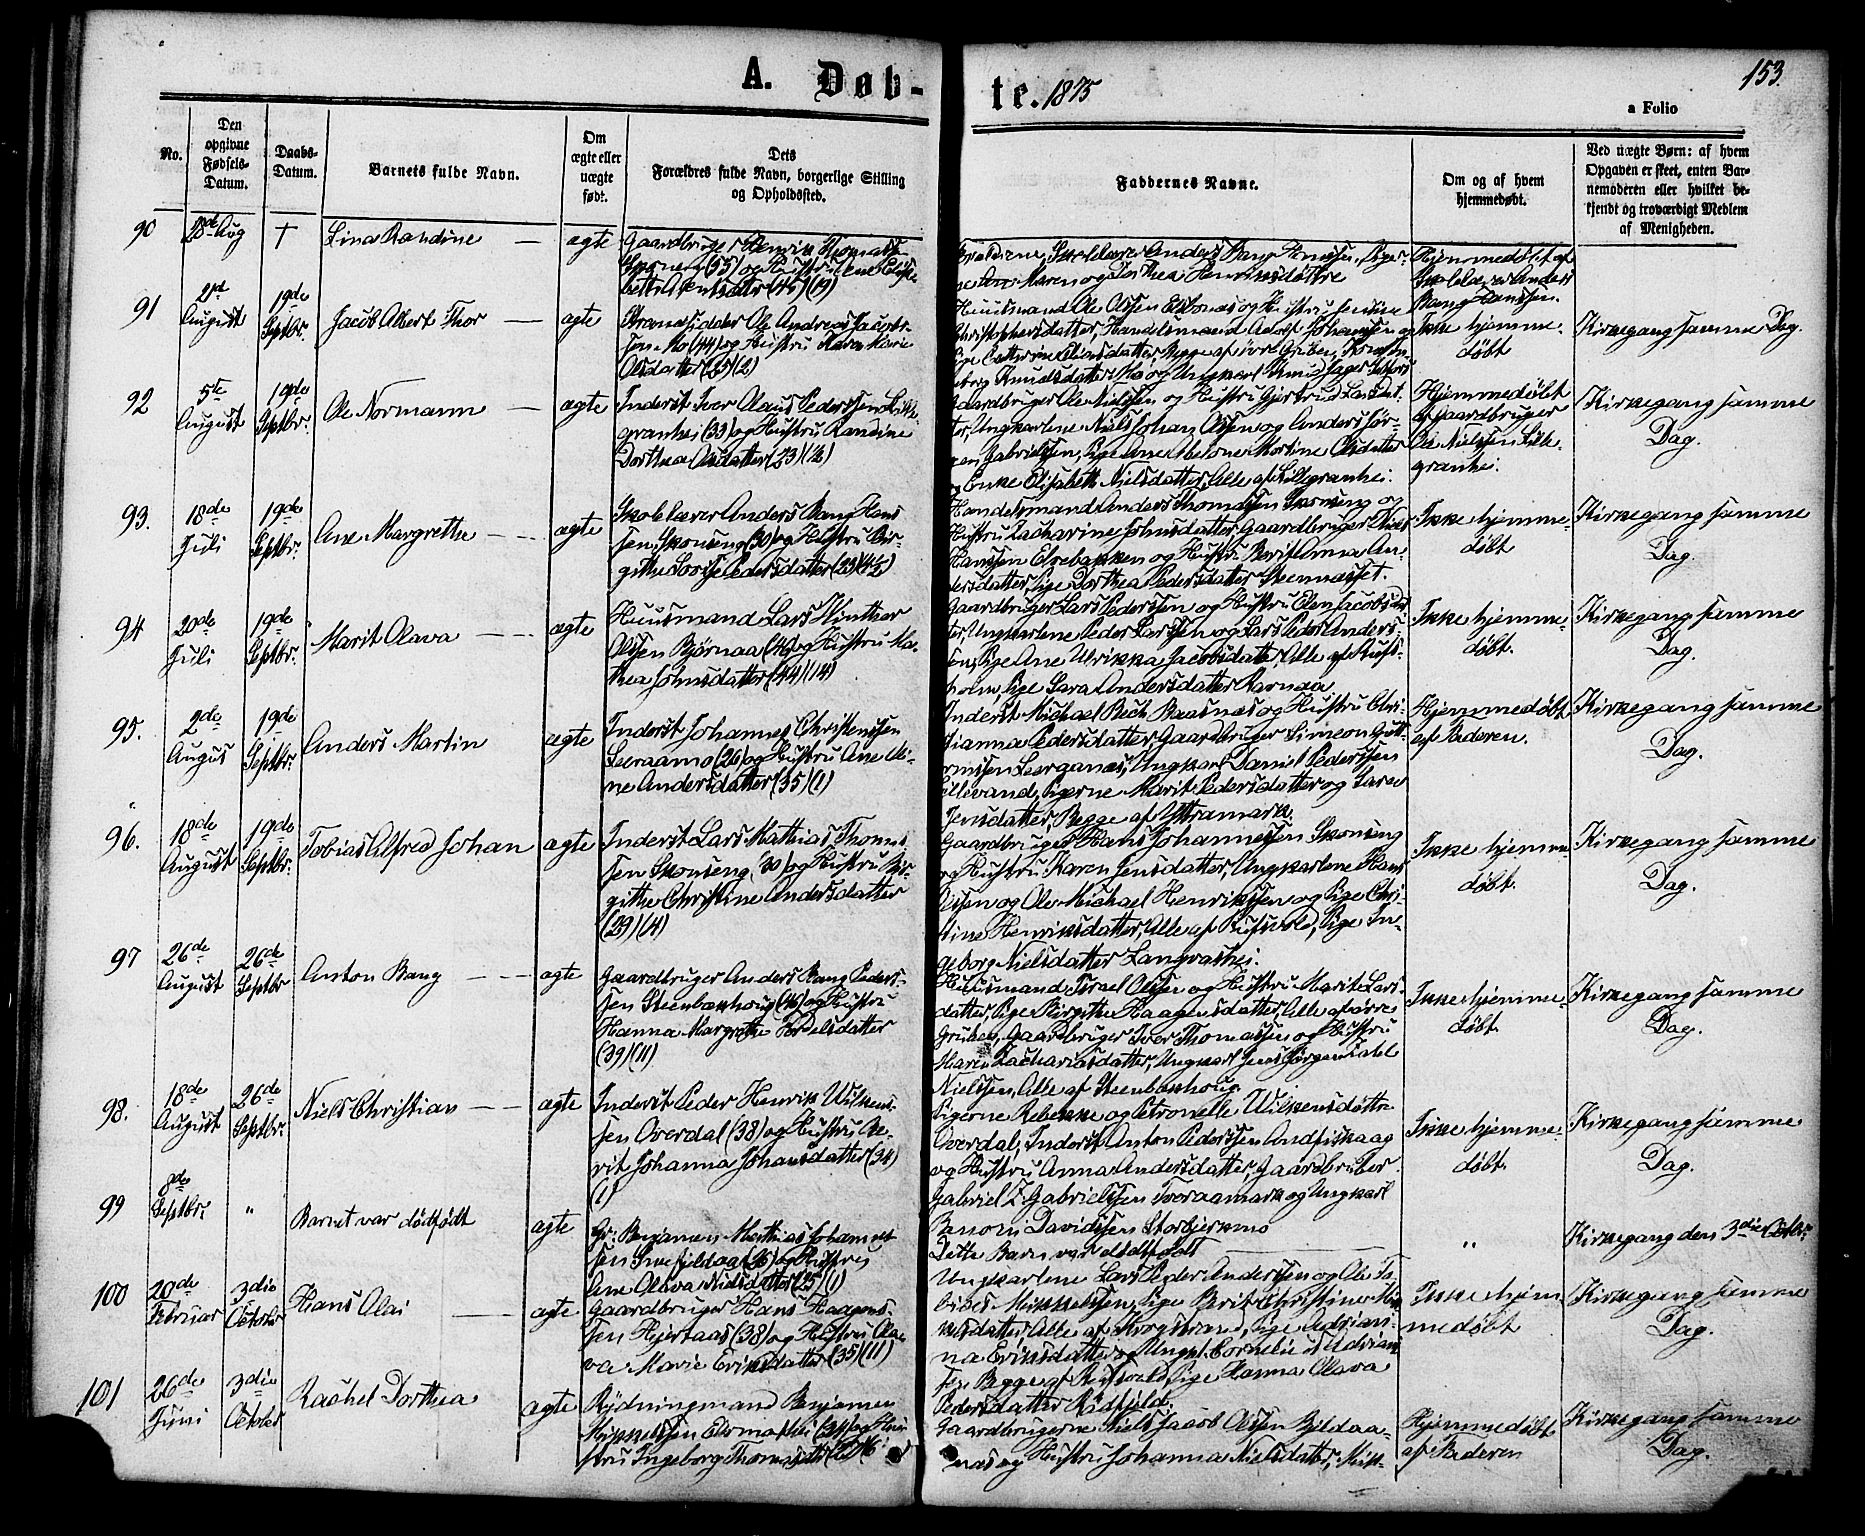 A. Døb-
te. 1875
153.
a Folio
No.
Den
opgivne
Fødsels-
Datum.
Daabs-
Datum.
Barnets fulde Navn.
Om
ægte eller
uægte
født.
Dets
Forældres fulde Navn, borgerlige Stilling
og Opholdssted.
Faddernes Navne.
Om og af hvem
hjemmedøbt.
Ved uægte Børn: af hvem
Opgaven er skeet, enten Bar-
nemoderen eller hvilket be-
kjendt og troværdigt Medlem
af Menigheden.
90
28de Aug
†
Lina Randine
ægte
Gaardbruger Henrik Thomassen
Skonseng (55) og Hustru
(45) (19)
Forældrene, Skolelærer Anders Bang Hanssen, Piger-
ne Ane Maren og Dorthea Henriksdøttre
Hjemmedøbt af
Skolelærer Anders
Bang Hanssen.
91
21de
August
19de
Septbr.
Jacob Albert Thor
ægte
Strandsidder Ole Andreas Jacob-
sen Mo (44) og Hustru Karen Marie
Olsdatter (25) (2)
Huusmand Ole Olssen og Hustru
Christophersdatter, Handelsmand Adolf Johanssen og
Pige Cathrine Eliasdatter, Begge af øvre Gruben,
Knudsdatter Mo og Ungkarl Knud
Ikke hjemme-
døbt
Kirkegang samme Dag.
92
5te
August
19de
Septbr.
Ole Normann
ægte
Inderst Iver Olaus Pederssen Lille-
granhei (33) og Hustru Randine
Dorthea Olsdatter (23) (½)
Gaardbruger Ole Nielssen og Hustru Gjertrud Larsdat-
ter, Ungkarlene Niels Johan Olssen og Anders Jør-
gen Gabrielssen, Pige Ane Martine Olsdatter
og Enke Elisabeth Nielsdatter, Alle af Lillegranhei.
Hjemmedøbt
af Gaardbruger
Ole Nielssen Lille-
granhei.
Kirkegang samme
Dag.
93.
18de
Juli
19de
Septbr.
Ane Margrethe
ægte
Skolelærer Anders Bang Hans
sen Skonseng (30) og Hustru Bir-
githe Lovise Pedersdatter (23) (4½)
Handelsmand Anders Thomassen Skonseng og
Hustru Zacharine Johnsdatter, Gaardbruger
Hanssen Elvebakken og Hustru Berit Anna An-
dersdatter, Pige Dorthea Pedersdatter Steennæsset.
Ikke hjemme-
døbt
Kirkegang samme
Dag.
94
20de
Juli
19de
Septbr.
Marit Olava
ægte
Huusmand Lars Winther
Olssen Bjørnaa (46) og Hustru Ma-
thea Johnsdatter (44) (14)
Gaardbruger Lars Pederssen og Hustru Elen Jacobsdat-
ter, Ungkarlene Peder Larssen og Lars Peder Anders-
sen, Pige Ane Ulrikka Jacobsdatter, Alle af
holm, Pige Sara Andersdatter Ravnaa
Ikke hjemme-
døbt.
Kirkegang samme
Dag.
95.
2de
August
19de
Septbr.
Anders Martin
ægte
Inderst Johannes Christenssen
Leeraamo (26) og Hustru Ane Oli-
ne Andersdatter (35) (1)
Inderst Michael Bech Baasnæs og Hustru Chri-
stianna Pedersdatter, Gaardbruger Simeon Gutt-
ormssen Leerganæs, Ungkarl Daniel Pederssen
Lillevand, Pigerne Marit Pedersdatter og Sara
Jensdatter, Begge af Yttramark.
Hjemmedøbt
af Faderen.
Kirkegang samme
Dag.
96.
18de
August
19de
Septbr.
Tobias Alfred Johan
ægte
Inderst Lars Mathias Thomas-
sen Skonseng (30) og Hustru Bir-
githe Christine Andersdatter
(29) (4)
Gaardbruger Hans Johannessen Skonseng
og Hustru Karen Jensdatter, Ungkarlene Hans
Olssen og Ole Michael Henrikssen og Pige Chri-
stine Henriksdatter, Alle af Rufsvold, Pige In-
geborg Nielsdatter Langvashei.
Ikke hjemme-
døbt.
Kirkegang samme
Dag.
97
26de
August
26de
Septbr
Anton Bang
ægte
Gaardbruger Anders Bang Peders-
sen Steenboxhoug (46) og Hustru
Hanna Margrethe Fordelsdatter
(39) (11)
Huusmand Israel Olssen og Hustru Marit Lars-
datter, Pige Birgithe Haagensdatter, Alle af øvre
Gruben, Gaardbruger Iver Thomassen og Hustru
Maren Zachariasdatter, Ungkarl Jens Jørgen Zahl
Nielssen, Alle af Steenboxhoug.
Ikke hjemme-
døbt.
Kirkegang samme
Dag.
98.
18de
August
26de
Septbr.
Niels Christian
ægte
Inderst Peder Henrik Wilkens-
sen Overdal (38) og Hustru Be-
rit Johanna Johansdatter (34)
(1)
Pigerne Rebekka og Petronelle Wilkensdøttre
Overdal, Inderst Anton Pederssen Andfiskaag
og Hustru Anna Andersdatter, Gaardbruger
Gabriel Z. Gabrielssen Tveraamark og Ungkarl
Benoni Davidssen Storbjerkmo
Ikke hjemme-
døbt.
Kirkegang samme
Dag.
99
8de
Septbr.
"
Barnet var dødfødt
ægte
Gr: Benjamin Mathias Johannes-
sen Snefjeldaa (26) og Hustru
Ane Olava Nielsdatter (25) (1)
Dette Barn var dødfødt
"
Kirkegang den 3die Octbr.
100
20de
Februar
3die
October
Hans Olai
ægte
Gaardbruger Hans Haagens-
sen Hjertaas (38) og Hustru Ola-
va Marie Eriksdatter (35) (11)
Ungkarlene Lars Peder Anderssen og Ole To-
bias Mikkelssen, Pige Berit Christine Mik-
kelsdatter, Alle af Krogstrand, Pige Adrian-
na Eriksdatter og Ungk. Cornelius Adrian
sen Begge af Rufsvold, Pige Hanna Olava
Pedersdatter Rødfjeld.
Ikke hjem
medøbt
Kirkegang samme
Dag.
101
26de
Juni
3die
October
Rachel Dorthea
ægte
Rydningsmand Benjamin
Mikkelssen (34) og Hu-
stru Ingeborg Thomasdatt
Gaardbrugerne Niels Jacob Olssen Bildaa-
næs og Hustru Johanna Nielsdatter, Mik-
Hjemmedøbt
af Faderen
Kirkegang samme
Dag.